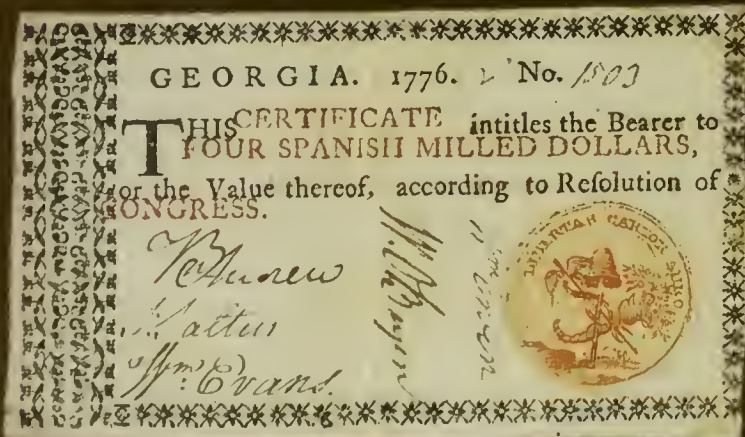 GEORGIA. 1776. No. 1503
THIS CERTIFICATE intitles the Bearer to
FOUR SPANISH MILLED DOLLARS,
or the Value thereof, according to Reſolution of
CONGRESS.
Wm. Evans.
LIBERTAS CARIOR AURO